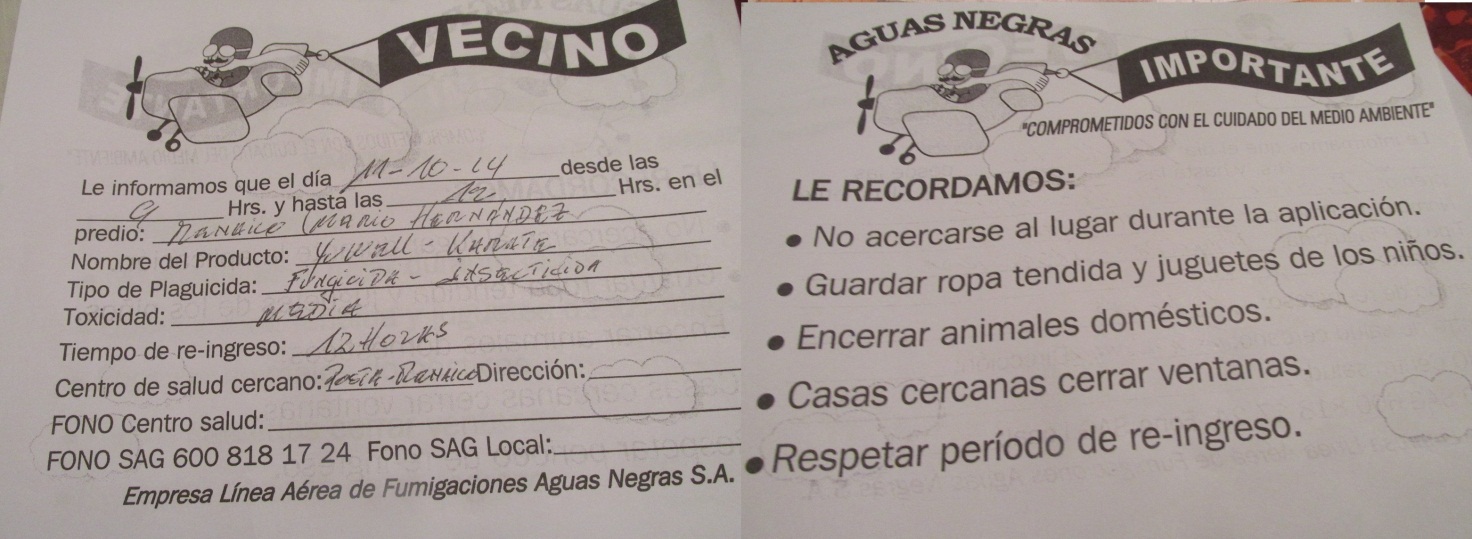 VECINO
Le informamos que el día 11-10-14 desde las
9 Hrs. y hasta las 12 Hrs. en el
predio: MANHICO (MARIO HERNÁNDEZ
Nombre del Producto: - KARATE
Tipo de Plaguicida: FUNGICIDA - INSECTICIDA
Toxicidad: MEDIA
Tiempo de re-ingreso: 12 HORAS
Centro de salud cercano: POSTA - MANHICO Dirección:
FONO Centro salud:
FONO SAG 600 818 17 24 Fono SAG Local:
Empresa Línea Aérea de Fumigaciones Aguas Negras S.A.
AGUAS NEGRAS
IMPORTANTE
"COMPROMETIDOS CON EL CUIDADO DEL MEDIO AMBIENTE"
LE RECORDAMOS:
● No acercarse al lugar durante la aplicación.
● Guardar ropa tendida y juguetes de los niños.
● Encerrar animales domésticos.
● Casas cercanas cerrar ventanas.
● Respetar período de re-ingreso.